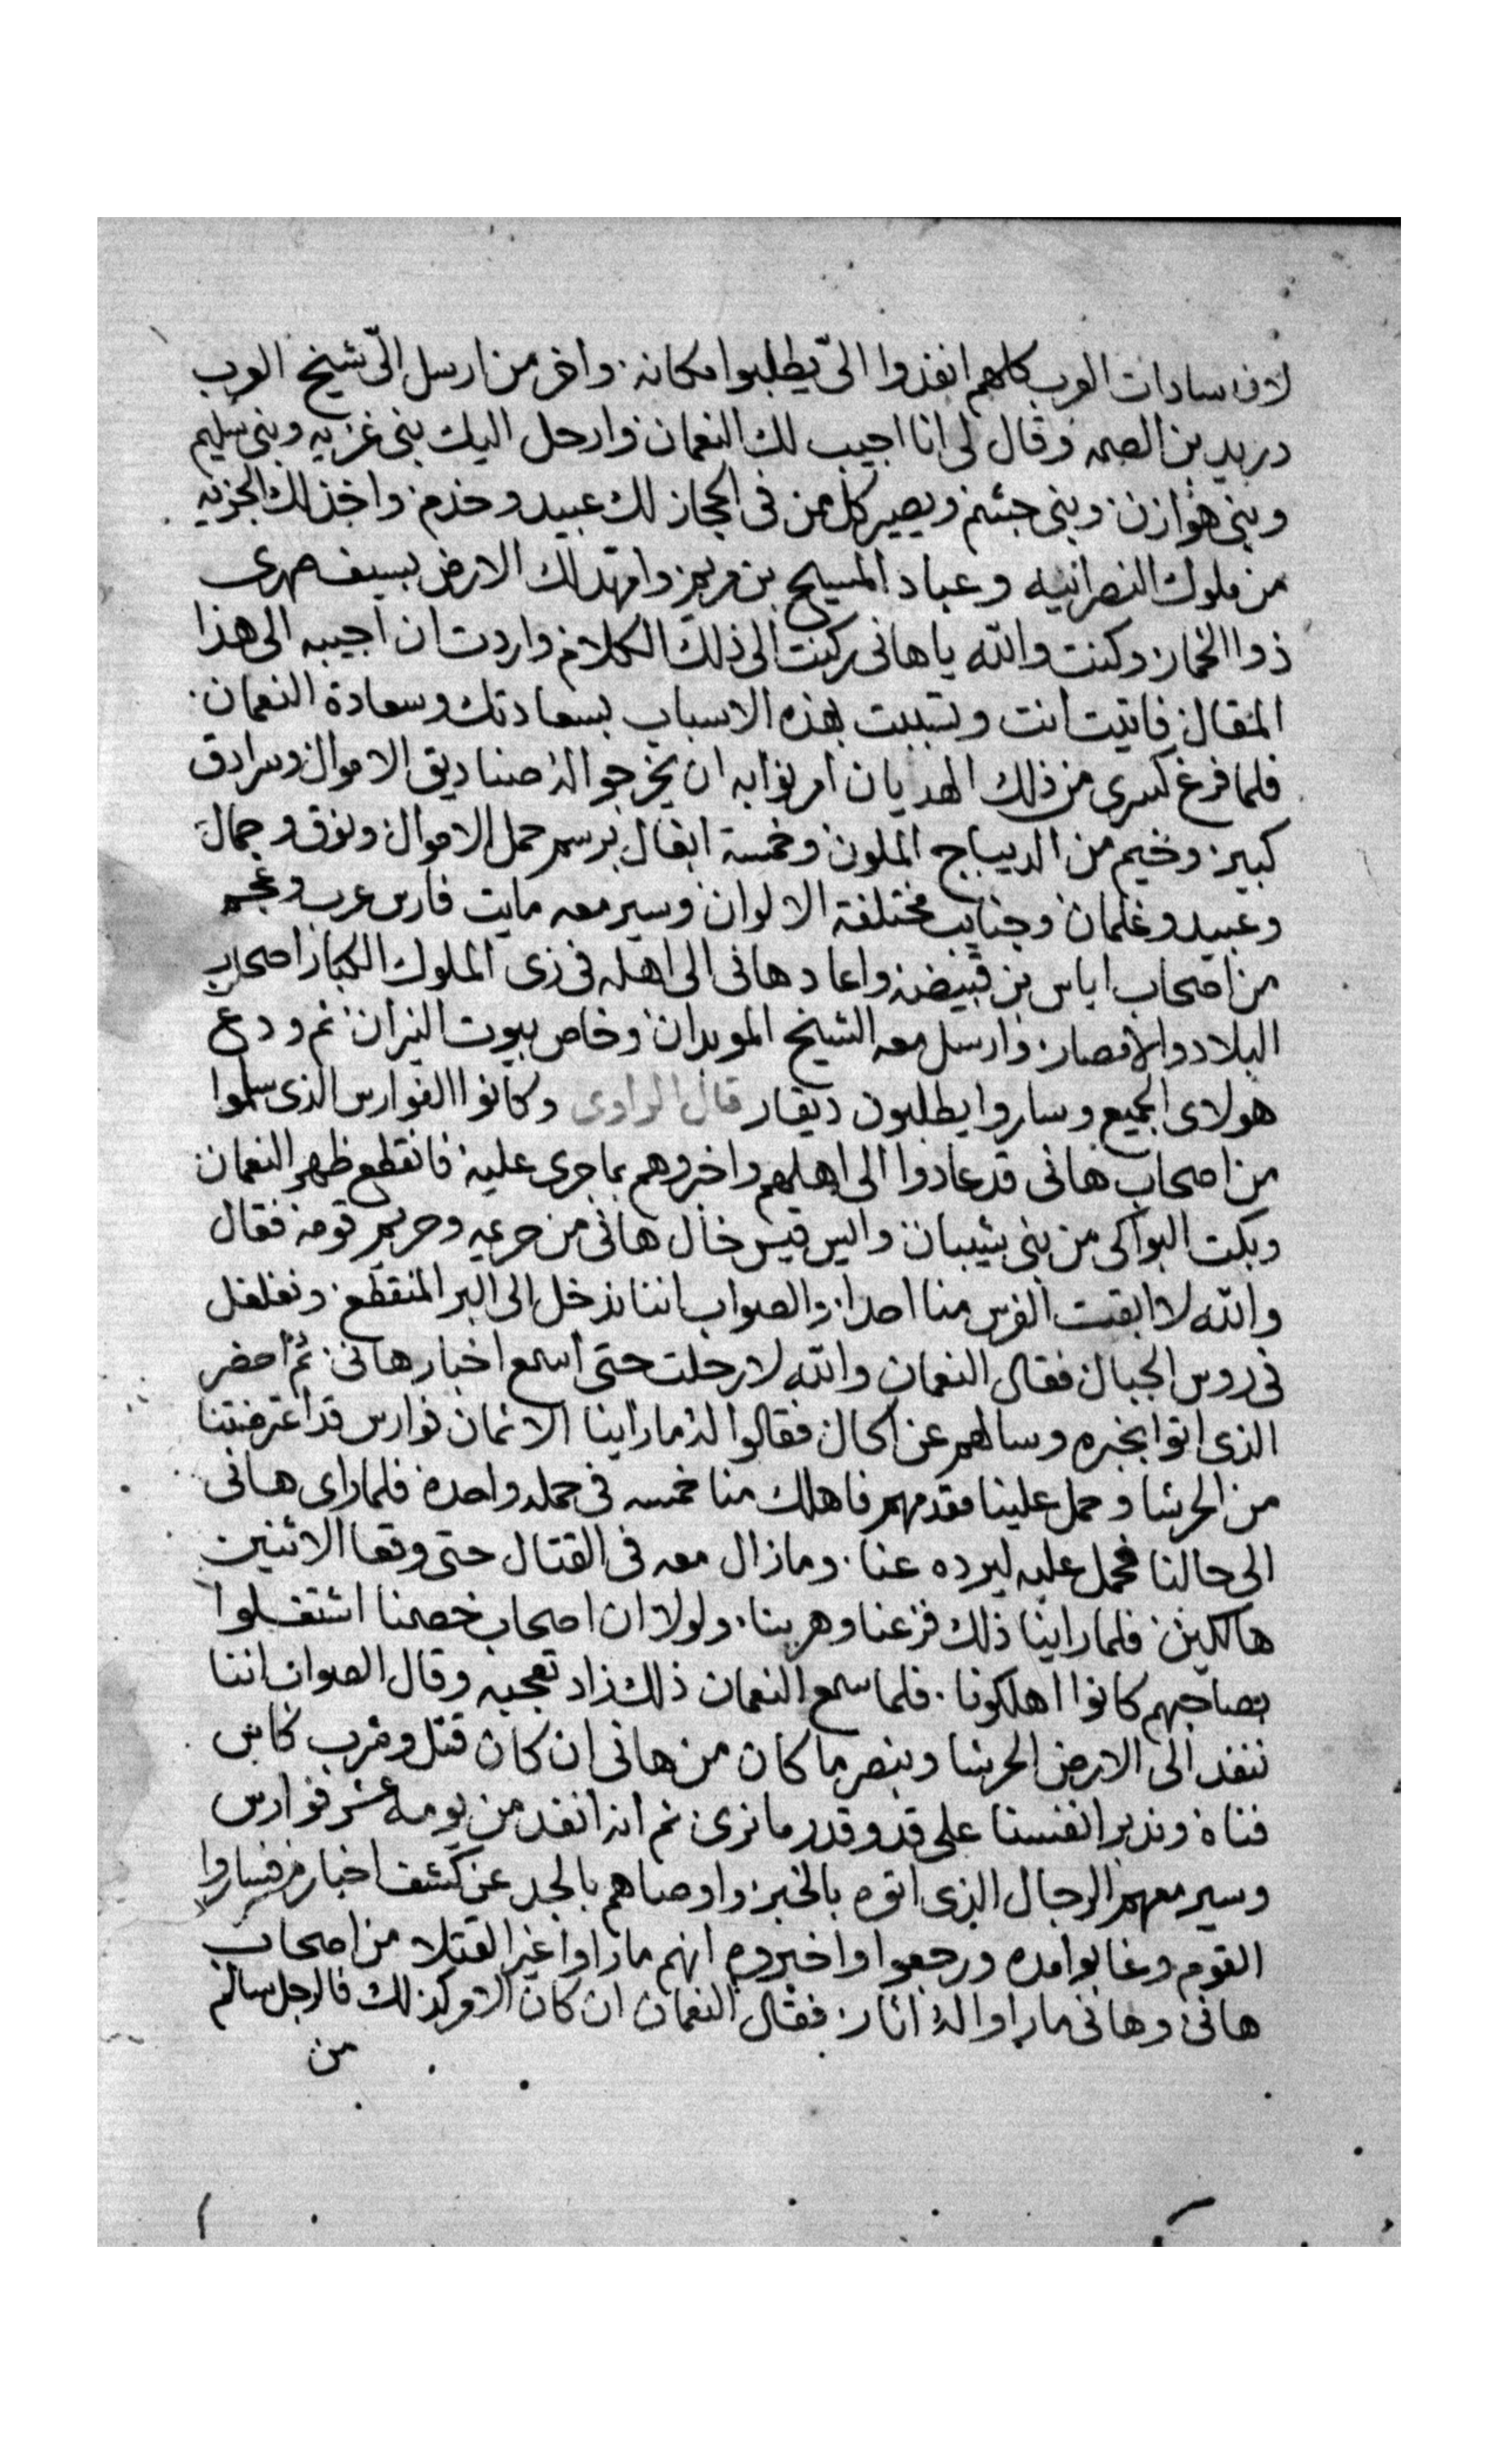 لان سادات العرب كلهم انفذوا الىّ يطلبوا مكانه واخر من ارسل الىّ شيخ العرب
دريد بن الصمه وقال لى انا اجيب لك النعمان وارحل اليك بنى غزيه وبنى سليم
وبنى هوازن وبنى جشم ويصير كل من فى الحجاز لك عبيد وخدم واخذ لك الجزيه
من ملوك النصرانيه وعباد المسيح بن مريم وامهد لك الارض بسيف صهرى
ذوا الخمار وكنت والله يا هانى ركنت الى ذلك الكلام واردت ان اجيبه الى هذا
المقال فاتيت انت وتسببت بهذه الاسباب بسعادتك وسعادة النعمان
فلما فرغ كسرى من ذلك الهديان امر نوابه ان يخرجوا له صناديق الاموال وسرادق
كبير وخيم من الديباج الملون وخمسة ابغال برسم حمل الاموال ونوق وجمال
وعبيد وغلمان وجنايب مختلفة الالوان وسير معه مايت فارس عرب وعجم
من اصحاب اياس بن قبيضه واعاد هانى الى اهله فى زى الملوك الكبار اصحاب
البلاد والامصار وارسل معه الشيخ الموبدان وخاص بيوت النيران ثم ودع
هولاى الجميع وساروا يطلبون ديقار قال الراوى وكانوا الفوارس الذى سلموا
من اصحاب هانى قد عادوا الى اهلهم واخبروهم بما جرى عليه فانقطع ظهر النعمان
وبكت البواكى من بنى شيبان وايس قيس خال هانى من حريمه وحريم قومه فقال
والله لا ابقت الفرس منا احدا والصواب اننا ندخل الى البر المنقطع ونغلغل
فى روس الجبال فقال النعمان والله لا رحلت حتى اسمع اخبار هانى ثم احضر
الذى اتوا بخبره وسالهم عن الحال فقالوا له ما راينا الا ثمان فوارس قد اعترضتنا
من الحرشا وحمل علينا مقدمهم فاهلك منا خمسه فى حمله واحده فلما راى هانى
الى حالنا فحمل عليه ليرده عنا وما زال معه فى القتال حتى وقعا الاثنين
هالكين فلما راينا ذلك فزعنا وهربنا ولولا ان اصحاب خصمنا اشتغلوا
بصاحبهم كانوا اهلكونا فلما سمع النعمان ذلك زاد تعجبه وقال الصواب اننا
ننفد الى الارض الحرشا وبنصر ما كان من هانى ان كان قتل وشرب كاس
فناه وندبر انفسنا على قد وقدر ما نرى ثم انه انفد من يومه عشر فوارس
وسير معهم الرجال الذى اتوه بالخبر واوصاهم بالجد عن كشف اخباره فساروا
القوم وغابوا مده ورجعوا واخبروه انهم ما راوا غير القتلا من اصحاب
هانى وهانى ما راوا له اثار فقال النعمان ان كان الامر كذلك فالرجل سالم
من